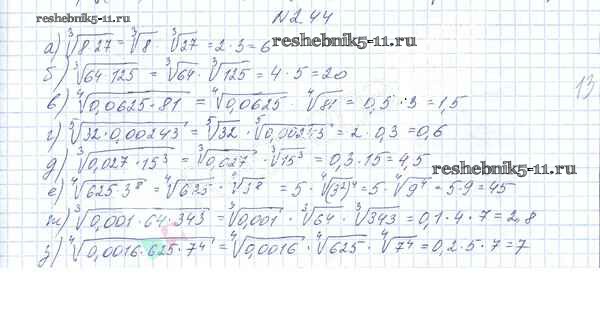 №2.44
а) ∛(8·27) = ∛8 · ∛27 = 2·3 = 6
reshebnik5-11.ru
б) ∛(64·125) = ∛64 · ∛125 = 4·5 = 20
13
в) ∜(0,0625·81) = ∜0,0625 · ∜81 = 0,5·3 = 1,5
г) ⁵√(32·0,00243) = ⁵√32 · ⁵√0,00243 = 2·0,3 = 0,6
д) ∛(0,027·15³) = ∛0,027 · ∛15³ = 0,3·15 = 4,5
reshebnik5-11.ru
е) ∜(625·3⁸) = ∜625 · ∜3⁸ = 5·∜(3²)⁴ = 5·∜9⁴ = 5·9 = 45
ж) ∛(0,001·64·343) = ∛0,001 · ∛64 · ∛343 = 0,1·4·7 = 2,8
з) ∜(0,0016·625·7⁴) = ∜0,0016 · ∜625 · ∜7⁴ = 0,2·5·7 = 7